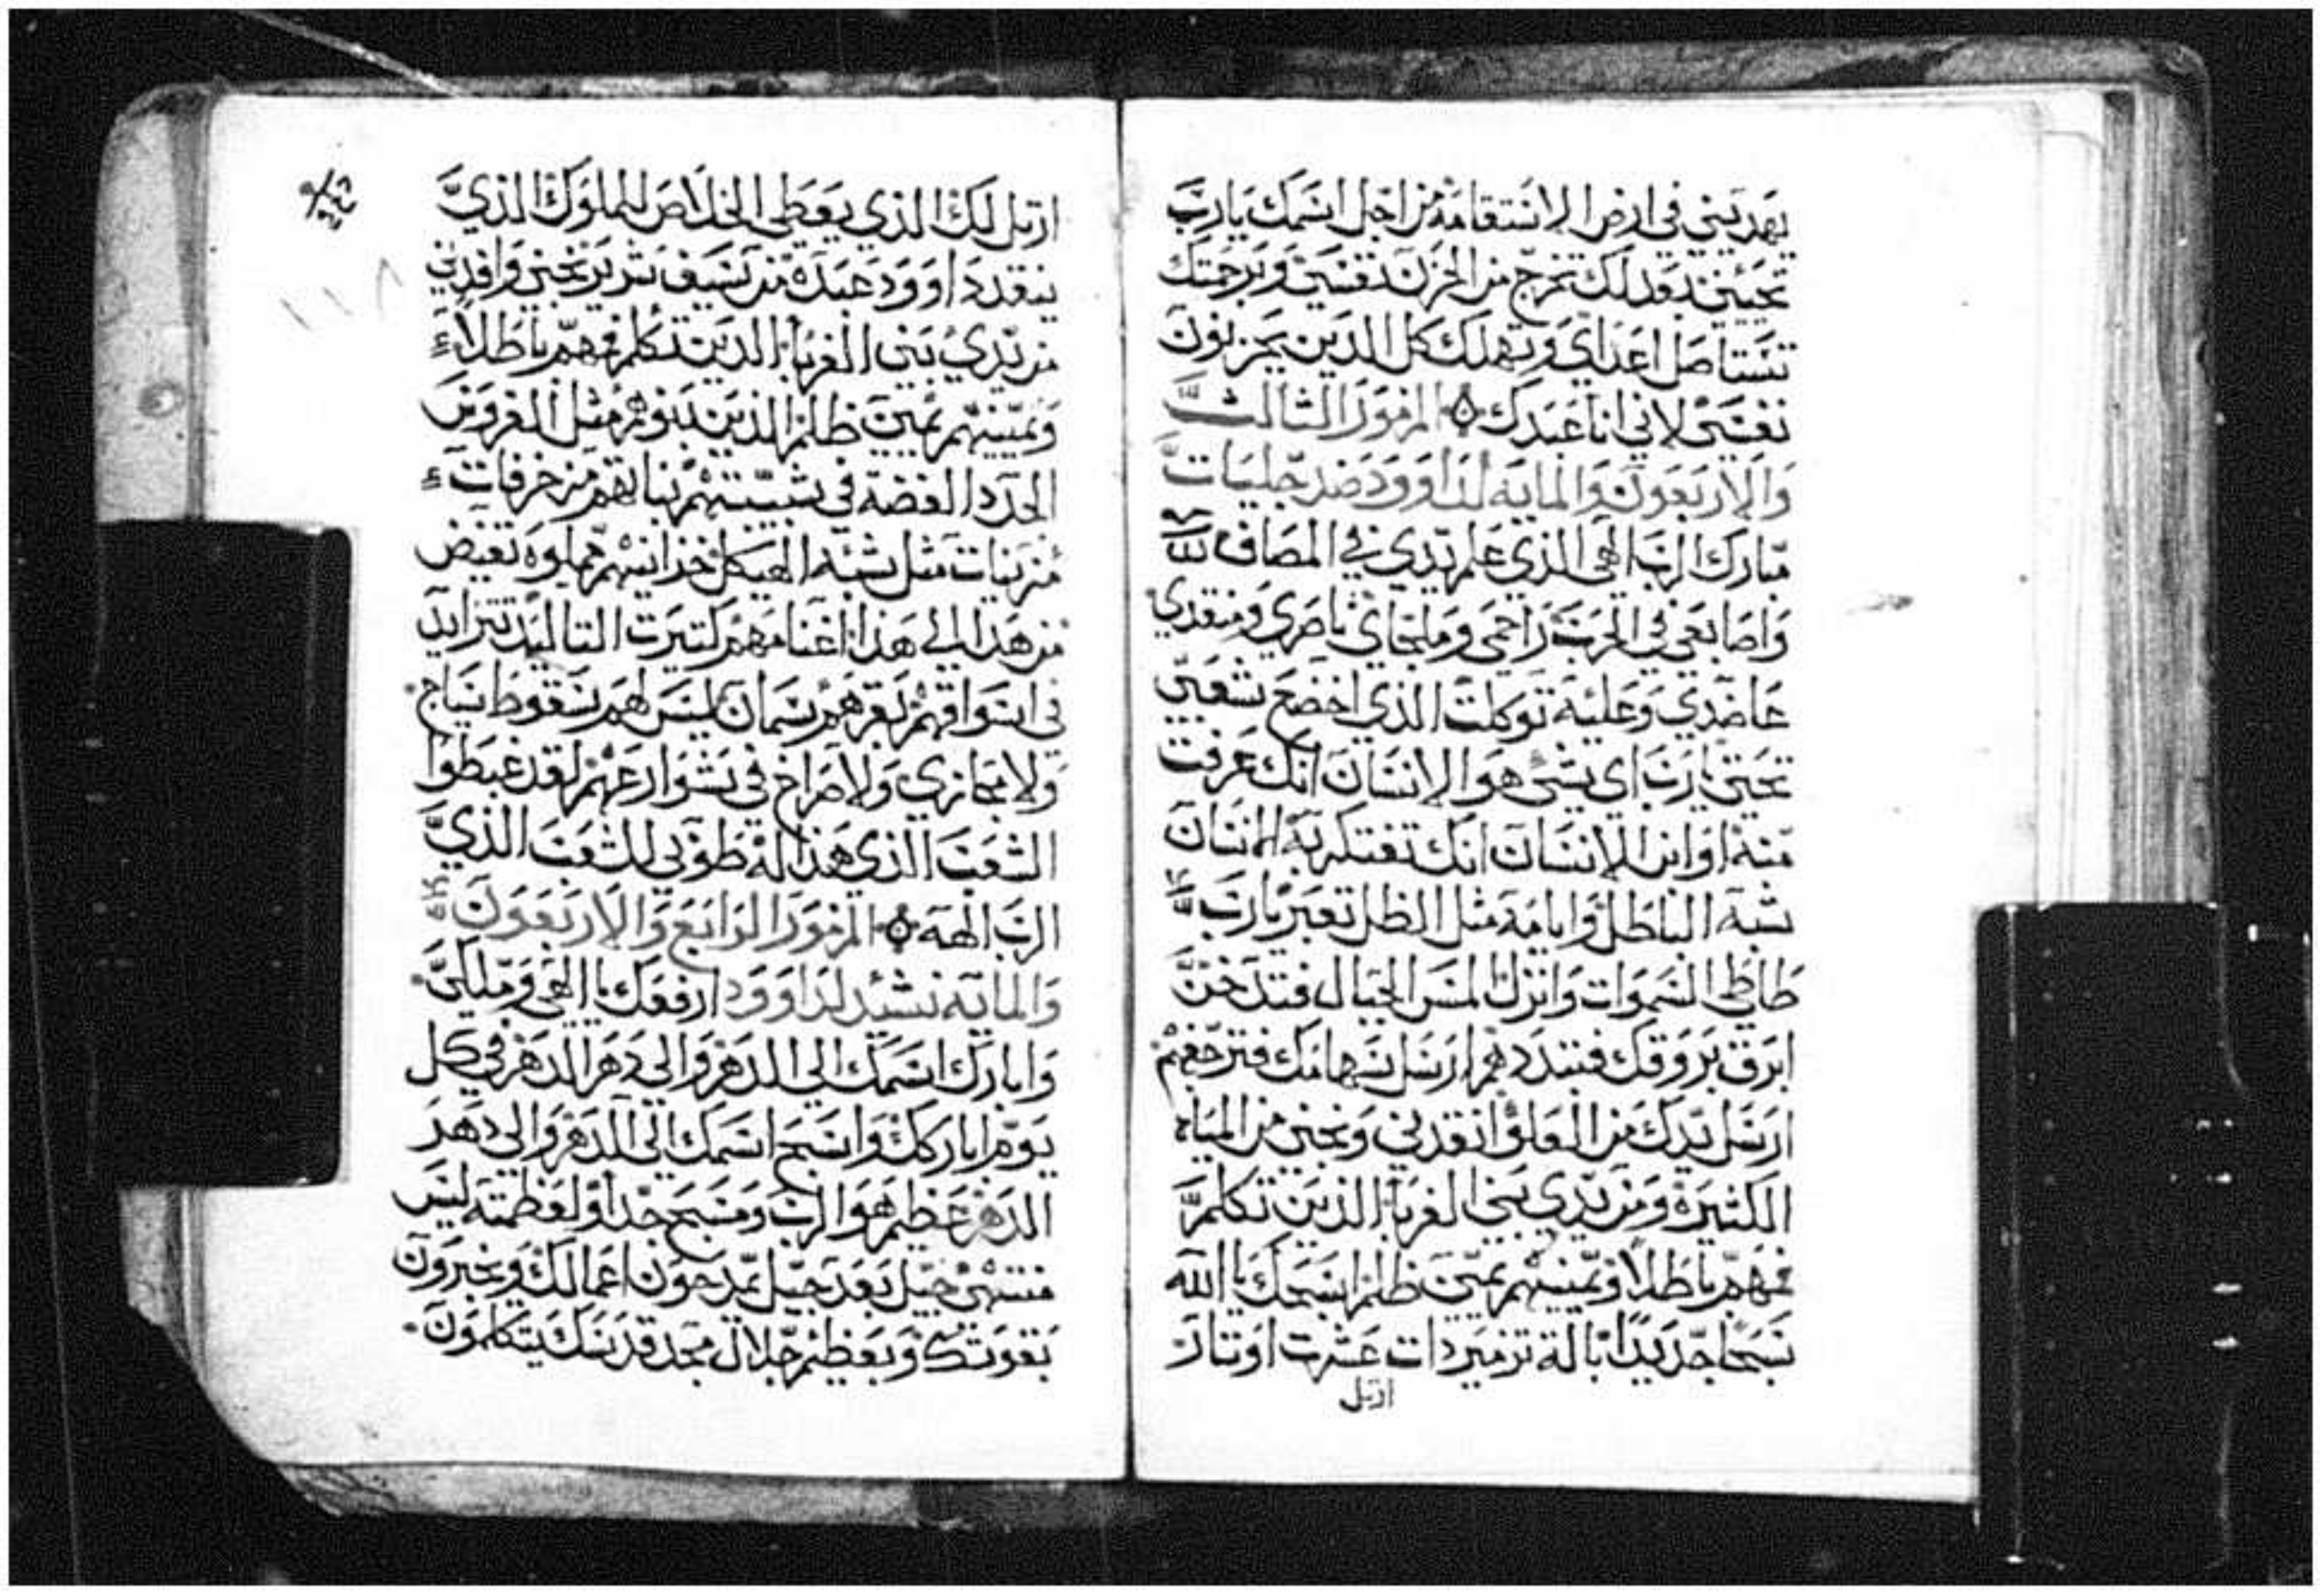 يهديني في ارض الاستقامة من اجل اسمك يارب
تحييني بعدلك تخرج من الحزن نفسي وبرحمتك
تستاصل اعداي وتهلك كل الذين يحزنون
نفسي لاني انا عبدك المزمور الثالث
والاربعون والمايه لداوود ضد جليات
مبارك الرب الهي الذي علم يدي في المصاف
واصابعي في الحرب راحمي وملجاي ناصري ومنقدي
عاضدي وعليه توكلت الذي اخضع شعبي
تحتي يارب اي شي هو الانسان انك عرفت
منه او ابن الانسان انك تفتكر به الانسان
شبه الباطل وايامه مثل الظل تعبر يارب
طاطي السموات وانزل المس الجبال فتدخن
ابرق بروقك فتبددهم ارسل سهامك فتزعجهم
ارسل يدك من العلو انقدني ونجني من المياه
الكثيره ومن يدي بني الغربا الذين تكلم
فمهم باطلا ويمينهم يمين ظلم اسبحك يا الله
تسبحا جديدا بالة تزمير ذات عشرت اوتار
ارتل
ارتل لك الذي يعطي الخلاص للملوك الذي
ينقد داوود عبده من سيف شرير نجني وافدني
من يدي بني الغربا الذين تكلم فمهم باطلا
ويمينهم يمين ظلم الذين بنوهم مثل الغروس
الجدد الغضة في شبيبتهم بناتهم مزخرفات
مزينات مثل شبه الهيكل خزاينهم مملوه تفيض
من هذا الي هذا اغنامهم كتيرت التاليد تتزايد
في اسواقهم بقرهم سمان ليس لهم سقوط سياج
ولا مجازي ولا صراخ في شوارعهم لقد غبطوا
الشعب الذي هذا له طوبي للشعب الذي
الرب الهه المزمور الرابع والاربعون
والمايه نشيد لداوود ارفعك يا الهي وملكي
وابارك اسمك الي الدهر والي دهر الدهر في كل
يوم اباركك واسبح اسمك الي الدهر والي دهر
الدهر عظيم هو الرب ومسبح جدا ولعظمته ليس
منتهي جيل بعد جيل يمدحون اعمالك ويخبرون
بقوتك وبعظيم جلال مجد قدسك يتكلمون